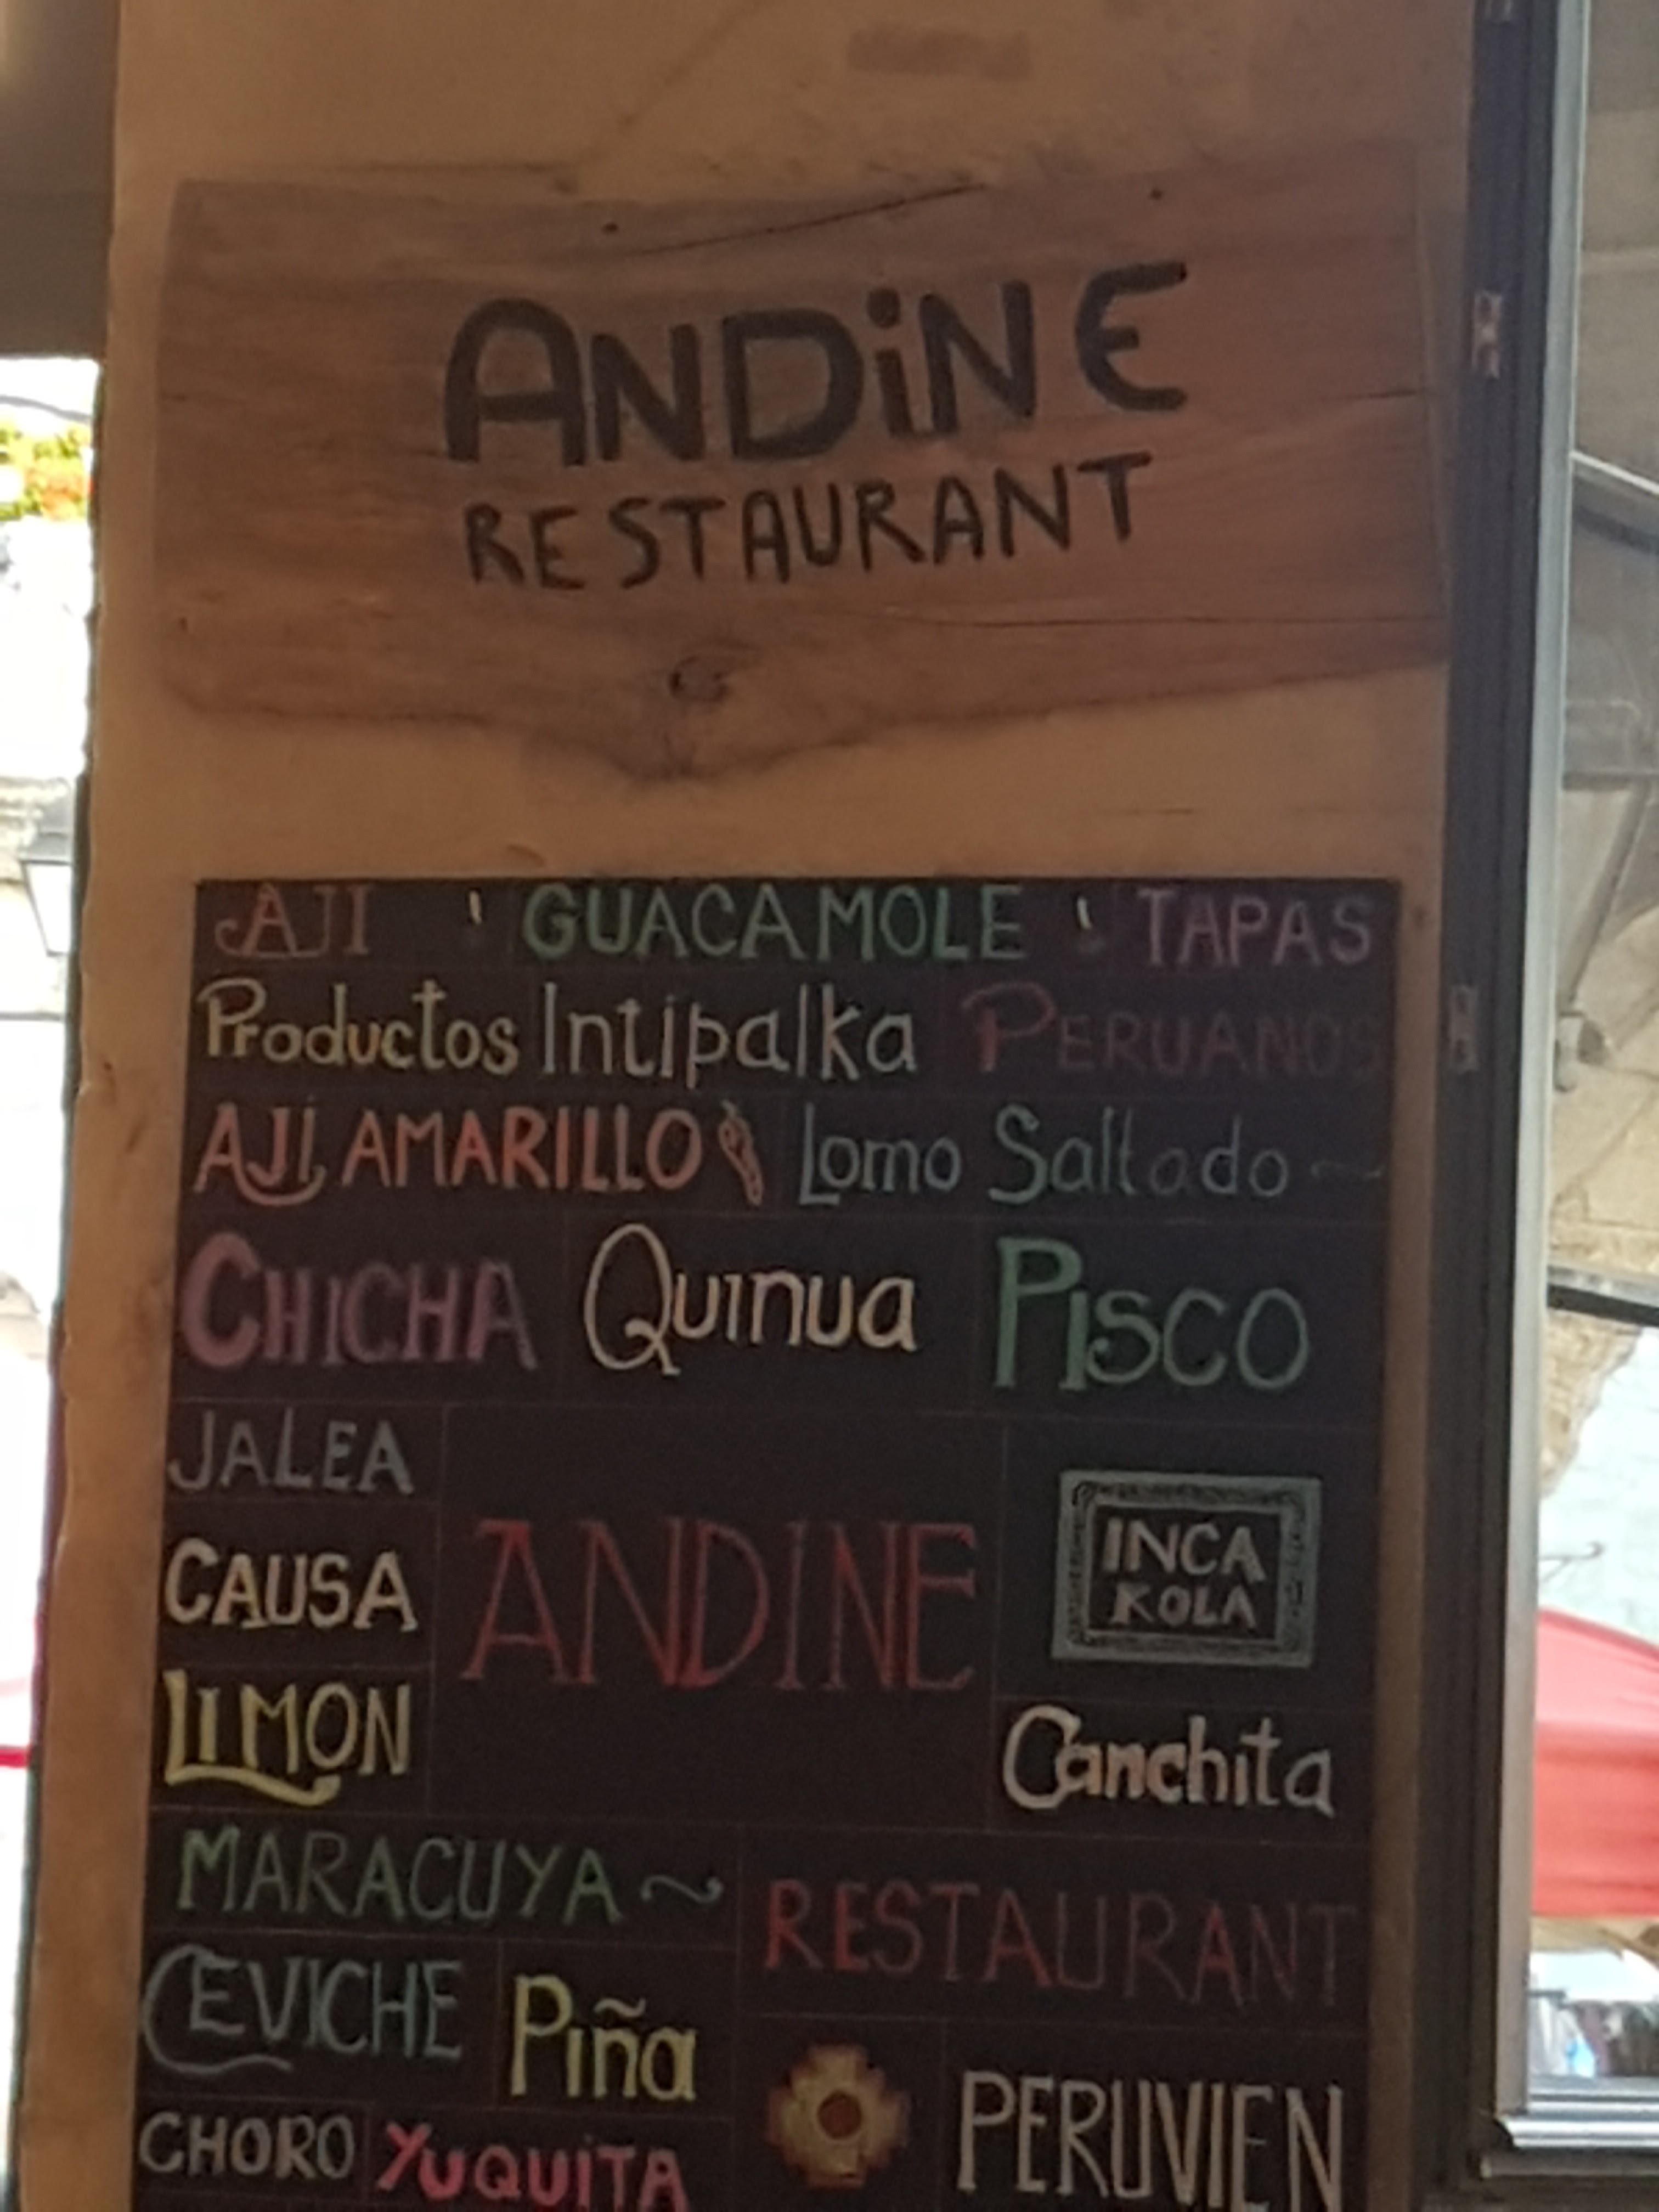 ANDiNE
RESTAURANT
AJI GUACAMOLE TAPAS
Productos Intipalka PERUANOS
AJÍ AMARILLO Lomo Saltado ~
CHICHA Quinua PISCO
JALEA
CAUSA
LIMON
ANDINE
INCA
KOLA
Canchita
MARACUYA ~
RESTAURANT
CEVICHE Piña
PERUVIEN
CHORO YUQUITA